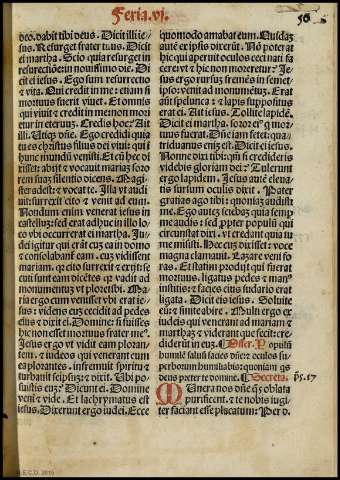 Feria.vj.
56
deo.dabit tibi deus. Dicit illi ie⸗
sus. Resurget frater tuus. Dicit
ei martha. Scio quia resurget in
resurrectiōe:in nouissimo die. Di
cit ei iesus. Ego sum resurrectio
et vita. Qui credit in me: etiam si
mortuus fuerit viuet. Et omnis
qui viuit et credit in me:non mori
etur in eternū. Credis hoc? Ait
illi. Utiqꝫ dn̄e. Ego credidi quia
tu es christus filius dei viui: qui ī
hunc mundū venisti. Et cū hec di
xisset: abijt et vocauit mariā soro
rem suā silentio dicens. Magi⸗
ster adest: et vocat te. Illa vt audi
uit:surrexit cito et venit ad eum.
Nondum enim venerat iesus in
castellū: sed erat adhuc in illo lo⸗
co vbi occurrerat ei martha. Ju⸗
dei igitur qui erāt cū ea in domo
et consolabant̄ eam. cuz vidissent
mariam. qꝛ cito surrexit et exijt se⸗
cuti sunt eam dicētes. qꝛ vadit ad
monumentū vt ploret ibi. Ma⸗
ria ergo cum venisset vbi erat ie⸗
sus: videns eum cecidit ad pedes
eius et dixit ei. Domine si fuisses
hic non esset mortuus frater me⁹.
Jesus ergo vt vidit eam ploran⸗
tem. et iudeos qui venerant cum
ea plorantes. infremuit spiritu et
turbauit seipsuz: et dixit. Ubi po⸗
suistis eum? Dicunt ei. Domine
veni et vide. Et lachrymatus est
iesus. Dixerunt ergo iudei. Ecce
quomodo amabat eum. Quidaz
autē ex ipsis dixerūt. Nō poterat
hic qui aperuit oculos ceci nati fa
cere vt hic non moreretur? Je⸗
sus ergo rursuz fremēs in semet⸗
ipso: venit ad monumētuz. Erat
aūt spelunca: et lapis suppositus
erat ei. Ait iesus. Tollite lapidē.
Dicit ei martha. soror ei⁹ qui mor⸗
tuus fuerat. Dn̄e iam fetet: qua⸗
triduanus enīz est. Dicit ei iesus.
Nonne dixi tibi: qm̄ si credideris
videbis gloriam dei? Tulerunt
ergo lapidem. Jesus autē eleua⸗
tis sursum oculis dixit. Pater
gratias ago tibi: quoniaz audisti
me. Ego autez sciebaz quia semp
me audis: sed ꝓpter populū qui
circumstat dixi. vt credant quia tu
me misisti. Hec cuz dixisset: voce
magna clamauit. Lazare veni fo
ras. Et statim prodijt qui fuerat
mortuus. ligatus pedes et man⁹
institis: et facies eius sudario erat
ligata. Dicit eis iesus. Soluite
eū: et sinite abire. Multi ergo ex
iudeis qui venerant ad mariam et
marthaz et viderant que fecit: cre⸗
diderūt in eū. Offer. Populū
humilē saluū facies dn̄e: et oculos su⸗
perborum humiliabis: quoniam qs
deus preter te domine. Secreta. ps.17
Munera nos dn̄e qs̄ oblata
purificent. et te nobis iugi⸗
ter faciant esse placatum: Per d.